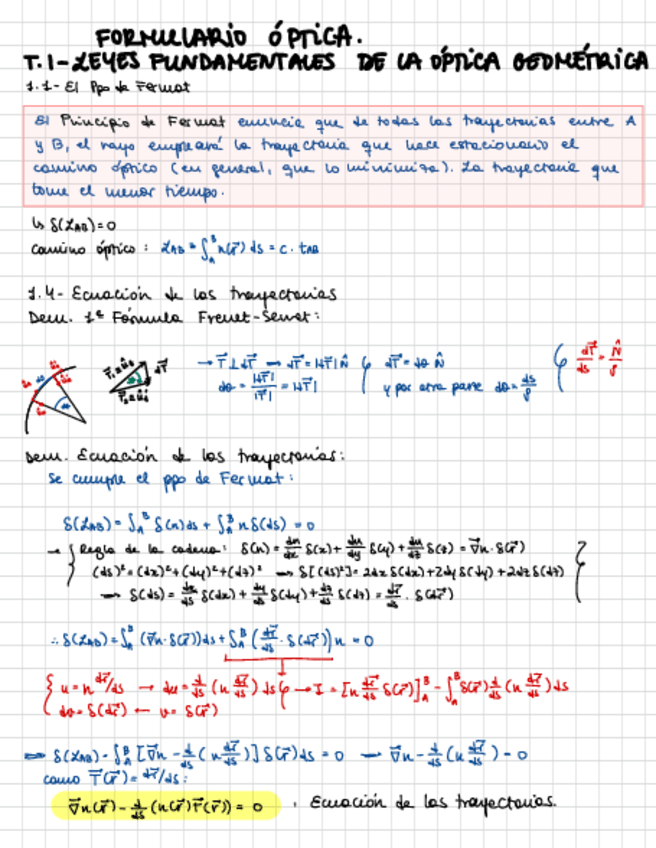 FORMULARIO ÓPTICA.
T.1-LEYES FUNDAMENTALES DE LA ÓPTICA GEOMÉTRICA
1.1- El Ppo de Fermat
El Principio de Fermat enuncia que de todas las trayectorias entre A
y B, el rayo empleará la trayectoria que hace estacionario el
camino óptico (en general, que lo minimiza). La trayectoria que
tome el menor tiempo.
↳ δ(L_AB)=0
Camino óptico: L_AB = ∫_A^B n(r⃗) ds = c · t_AB
1.4- Ecuación de las trayectorias
Dem. 1ª Fórmula Frenet-Serret:
→ T⃗ ⊥ dT⃗ → dT⃗ = |dT⃗| N̂ } dT⃗ = dθ N̂
dθ = |dT⃗|/|T⃗| = |dT⃗| y por otra parte dθ = ds/ρ
dT⃗/ds = N̂/ρ
Dem. Ecuación de las trayectorias:
Se cumple el ppo de Fermat:
δ(L_AB) = ∫_A^B δ(n) ds + ∫_A^B n δ(ds) = 0
→ { Regla de la cadena: δ(n) = dn/dx δ(x) + dn/dy δ(y) + dn/dz δ(z) = ∇⃗n · δ(r⃗)
(ds)² = (dx)² + (dy)² + (dz)² → δ[(ds)²] = 2dx δ(dx) + 2dy δ(dy) + 2dz δ(dz)
→ δ(ds) = dx/ds δ(dx) + dy/ds δ(dy) + dz/ds δ(dz) = dr⃗/ds · δ(dr⃗)
∴ δ(L_AB) = ∫_A^B (∇⃗n · δ(r⃗)) ds + ∫_A^B (dr⃗/ds · δ(dr⃗)) n = 0
{ u = n dr⃗/ds → du = d/ds (n dr⃗/ds) ds } → I = [n dr⃗/ds δ(r⃗)]_A^B - ∫_A^B δ(r⃗) d/ds (n dr⃗/ds) ds
dv = δ(dr⃗) ← v = δ(r⃗)
⇒ δ(L_AB) = ∫_A^B [∇⃗n - d/ds (n dr⃗/ds)] δ(r⃗) ds = 0 → ∇⃗n - d/ds (n dr⃗/ds) = 0
como T⃗(r⃗) = dr⃗/ds:
∇⃗n(r⃗) - d/ds (n(r⃗) T⃗(r⃗)) = 0 . Ecuación de las trayectorias.